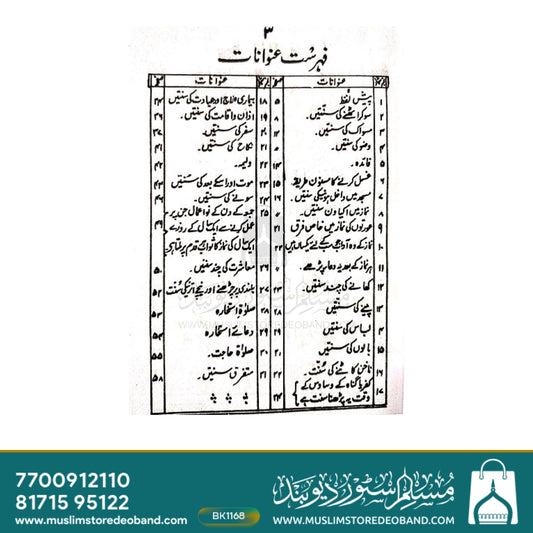 ۳
فہرست عنوانات
نمبر عنوانات صفحہ
۱ پیش لفظ ۵
۲ سو کر اٹھنے کی سنتیں ۸
۳ مسواک کی سنتیں۔
۴ وضو کی سنتیں۔
۵ فائدہ۔ ۱۴
۶ غسل کرنے کا مسنون طریقہ ۱۵
۷ مسجد میں داخل ہونیکی سنتیں۔ ۱۶
۸ نماز میں اکیاون سنتیں۔
۹ عورتوں کی نماز میں خاص فرق ۲۱
۱۰ نماز کے وہ آداب
۱۱ ہر نماز کے بعد یہ دعا پڑھے۔
۱۲ کھانے کی چند سنتیں۔
۱۳ پینے کی سنتیں ۲۸
۱۴ لباس کی سنتیں
۱۵ بالوں کی سنتیں
۱۶ ناخن کاٹنے کی سنت۔
۱۷ کفر یا گناہ کے وساوس کے
وقت یہ پڑھنا سنت ہے
عنوانات
۱۸ بیماری علاج اور عیادت کی سنتیں
۱۹ اذان و اقامت کی سنتیں۔
۲۰ سفر کی سنتیں۔ ۳۷
۲۱ نکاح کی سنتیں۔
۲۲ ولیمہ۔ ۴۲
۲۳ موت اور اسکے بعد کی سنتیں ۴۳
۲۴ سونے کی سنتیں۔
۲۵ جمعہ کے دن کے نو اعمال جن پر
عمل کرنے سے ایک سال کے روزے
ایک سال کی نماز کا ثواب ہر قدم پر ملتا ہے
۲۶ معاشرت کی چند سنتیں۔ ۵۰
۲۷ بلندی پر چڑھنے اور نیچے اترنیکی سنت ۵۲
۲۸ صلوٰۃ استخارہ
۲۹ دعائے استخارہ
۳۰ صلوٰۃ حاجت۔ ۵۵
۳۱ متفرق سنتیں۔ ۵۸
مسلم سٹور دیوبند
WWW.MUSLIMSTOREDEOBAND.COM
7700912110
81715 95122
www.muslimstoredeoband.com
BK1168
مسلم سٹور دیوبند
WWW.MUSLIMSTOREDEOBAND.COM